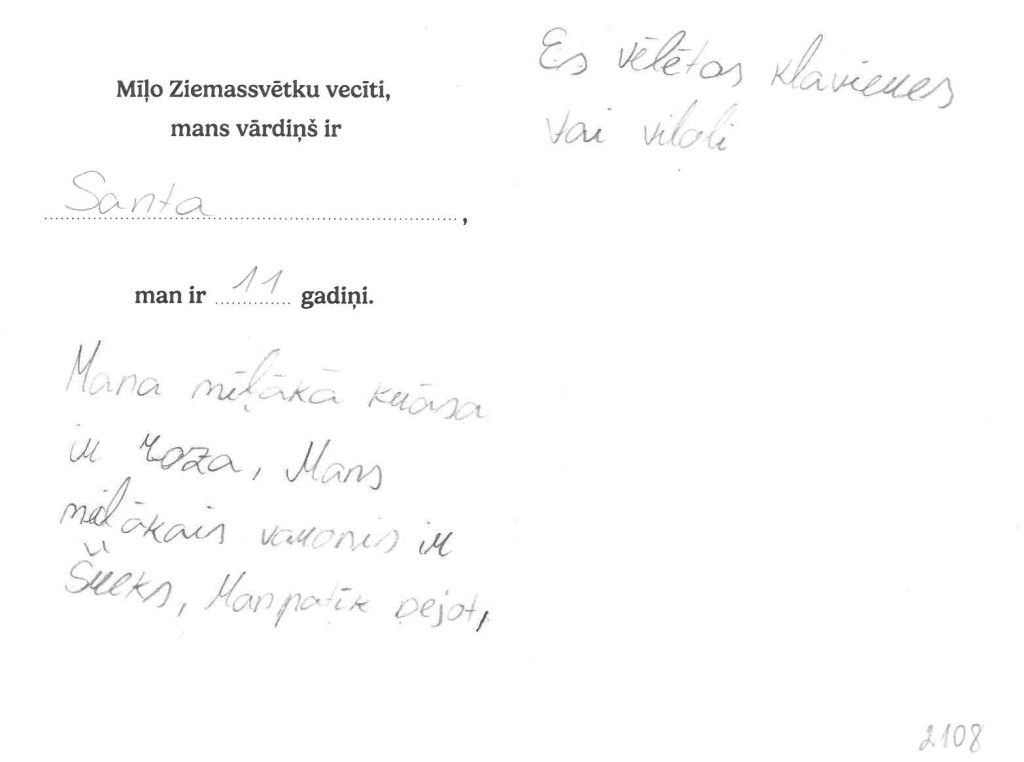 Mīļo Ziemassvētku vecīti,
mans vārdiņš ir
Santa,
man ir 11 gadiņi.
Mana mīļākā krāsa
ir roza, Mans
mīļākais varonis ir
Šreks, Man patīk dejot,
Es vēlētos klavieres
vai vijoli
2108